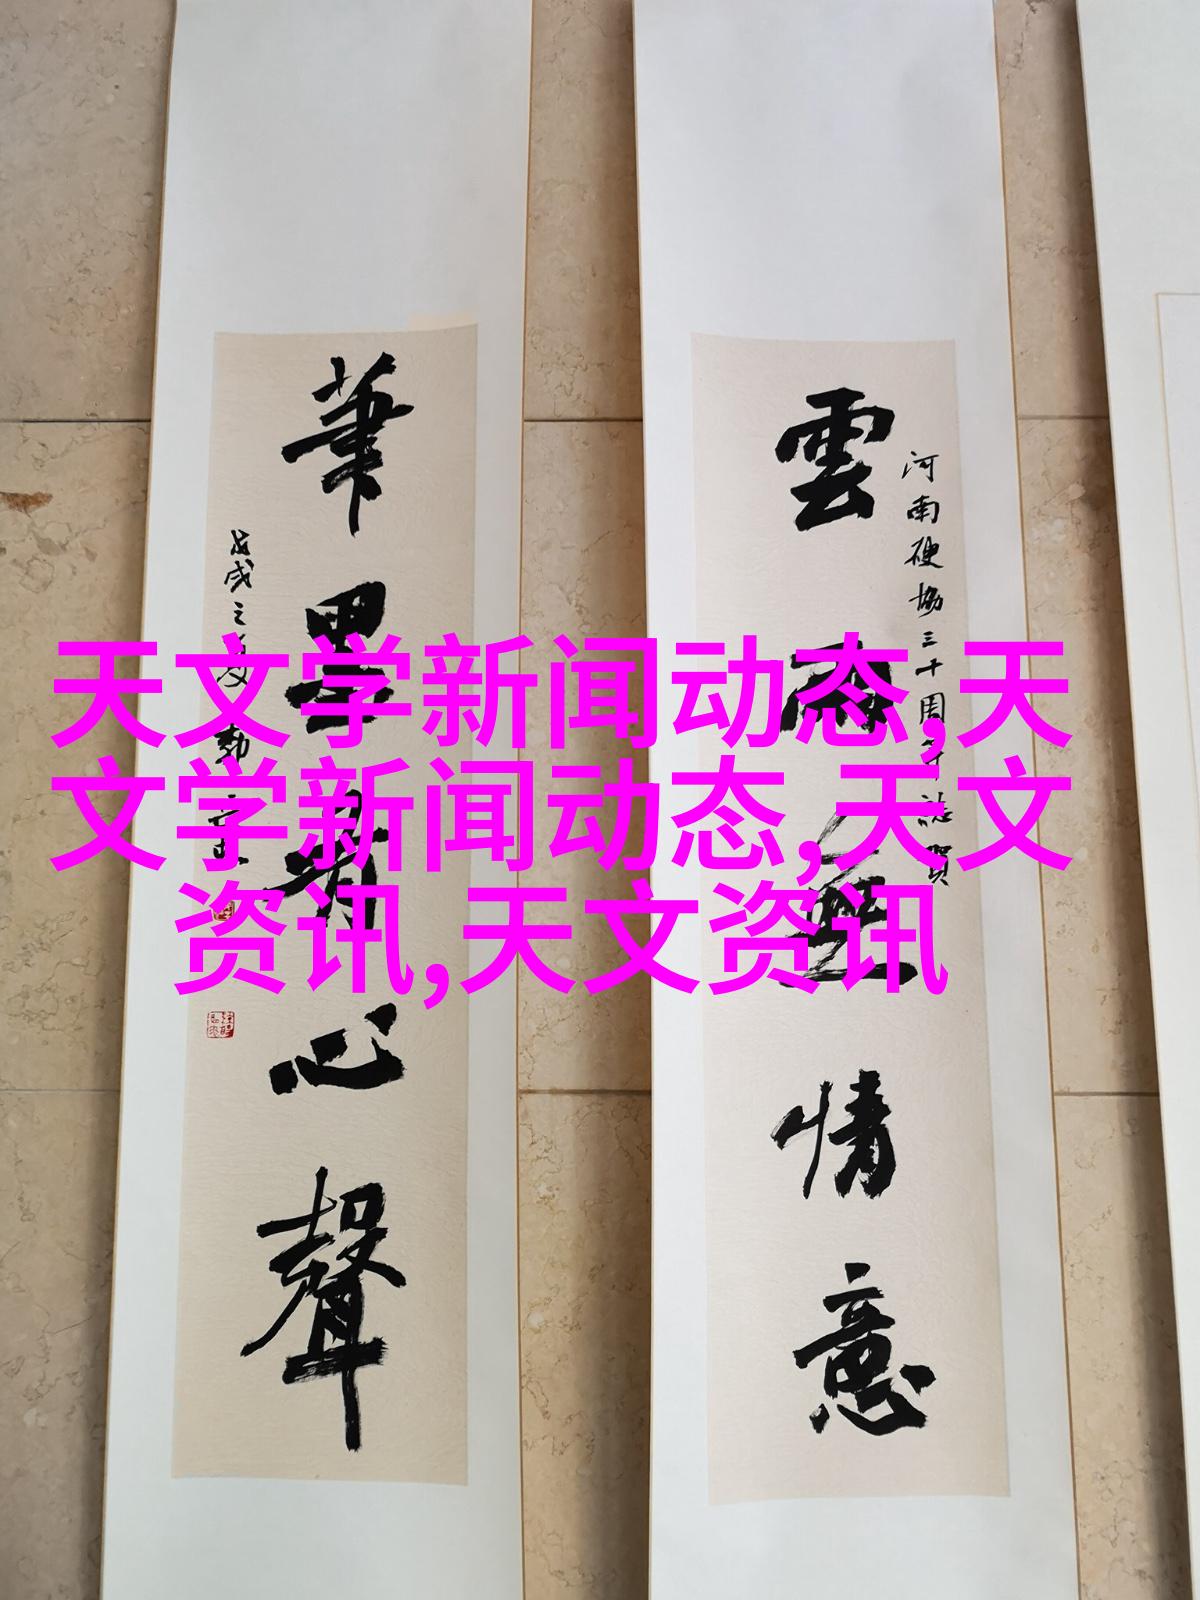 天文学新闻动态,天
文学新闻动态,天文
资讯,天文资讯
河南硬協三十周年誌賀
雲雨無情意
筆墨有心聲
戊戌之夏勃